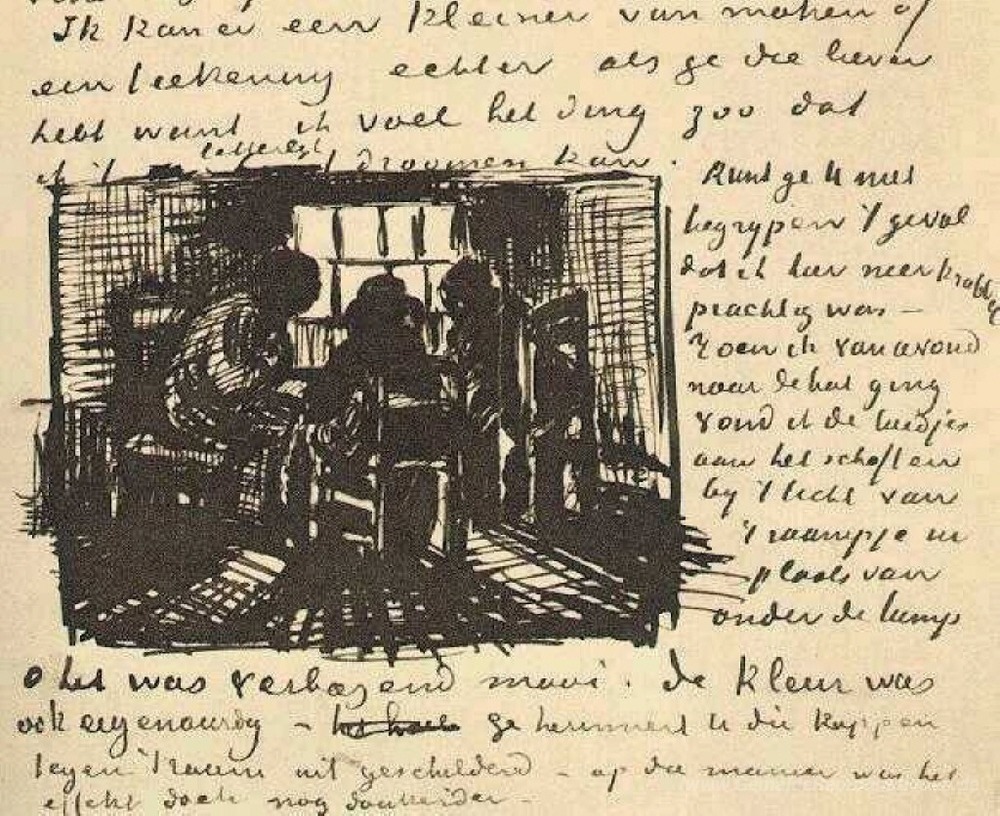 Ik kan er een kleiner van maken of
een teekening echter als ge die liever
hebt want ik voel het ding zoo dat
ik 't letterlijk droomen kan.
Kunt ge U niet
begrypen 't geval
dat ik hier neerkrabbel
prachtig was –
Toen ik van avond
naar de hut ging
vond ik de luidjes
aan het schoften
by 't licht van
't raampje in
plaats van
onder de lamp
o het was verbazend mooi. de kleur was
ook eigenaardig – ge herinnert U die koppen
tegen 't raam uit geschilderd – op die manier was het
effekt doch nog donkerder –